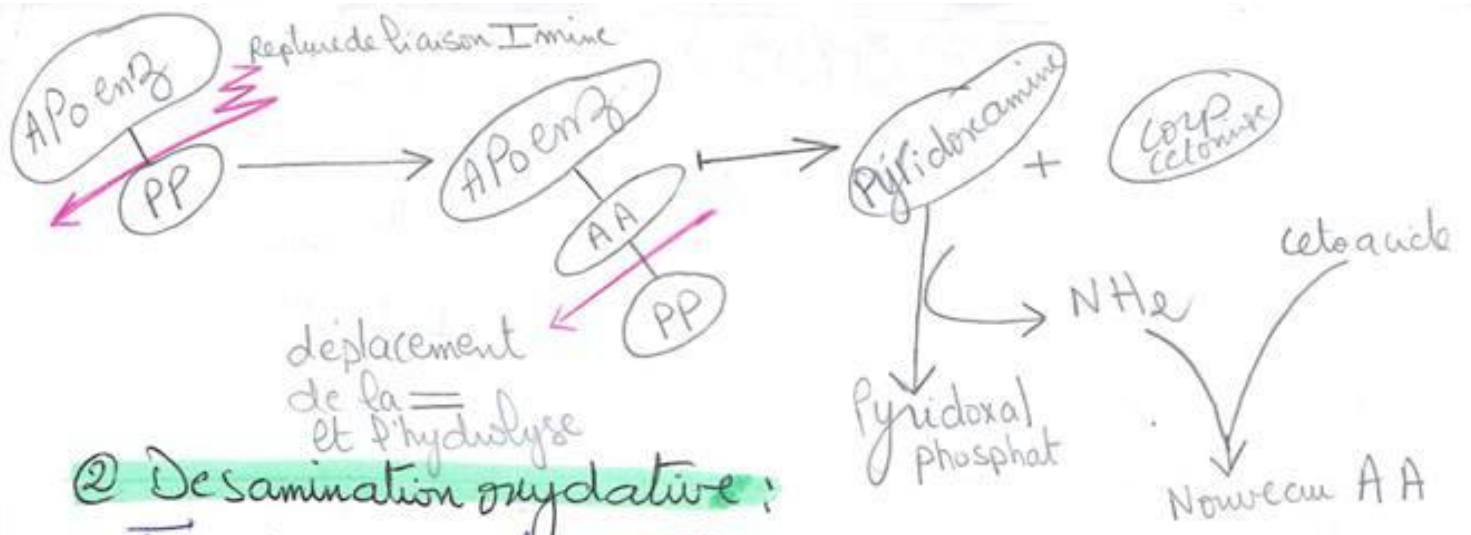 Repture de liaison Imine
APoenz
PP
APoenz
AA
PP
déplacement
de la =
et l'hydrolyse
Pyridoxamine
+
Corp
cetonique
NH2
cetoacide
Pyridoxal
phosphat
Nouveau AA
② Desamination oxydative :